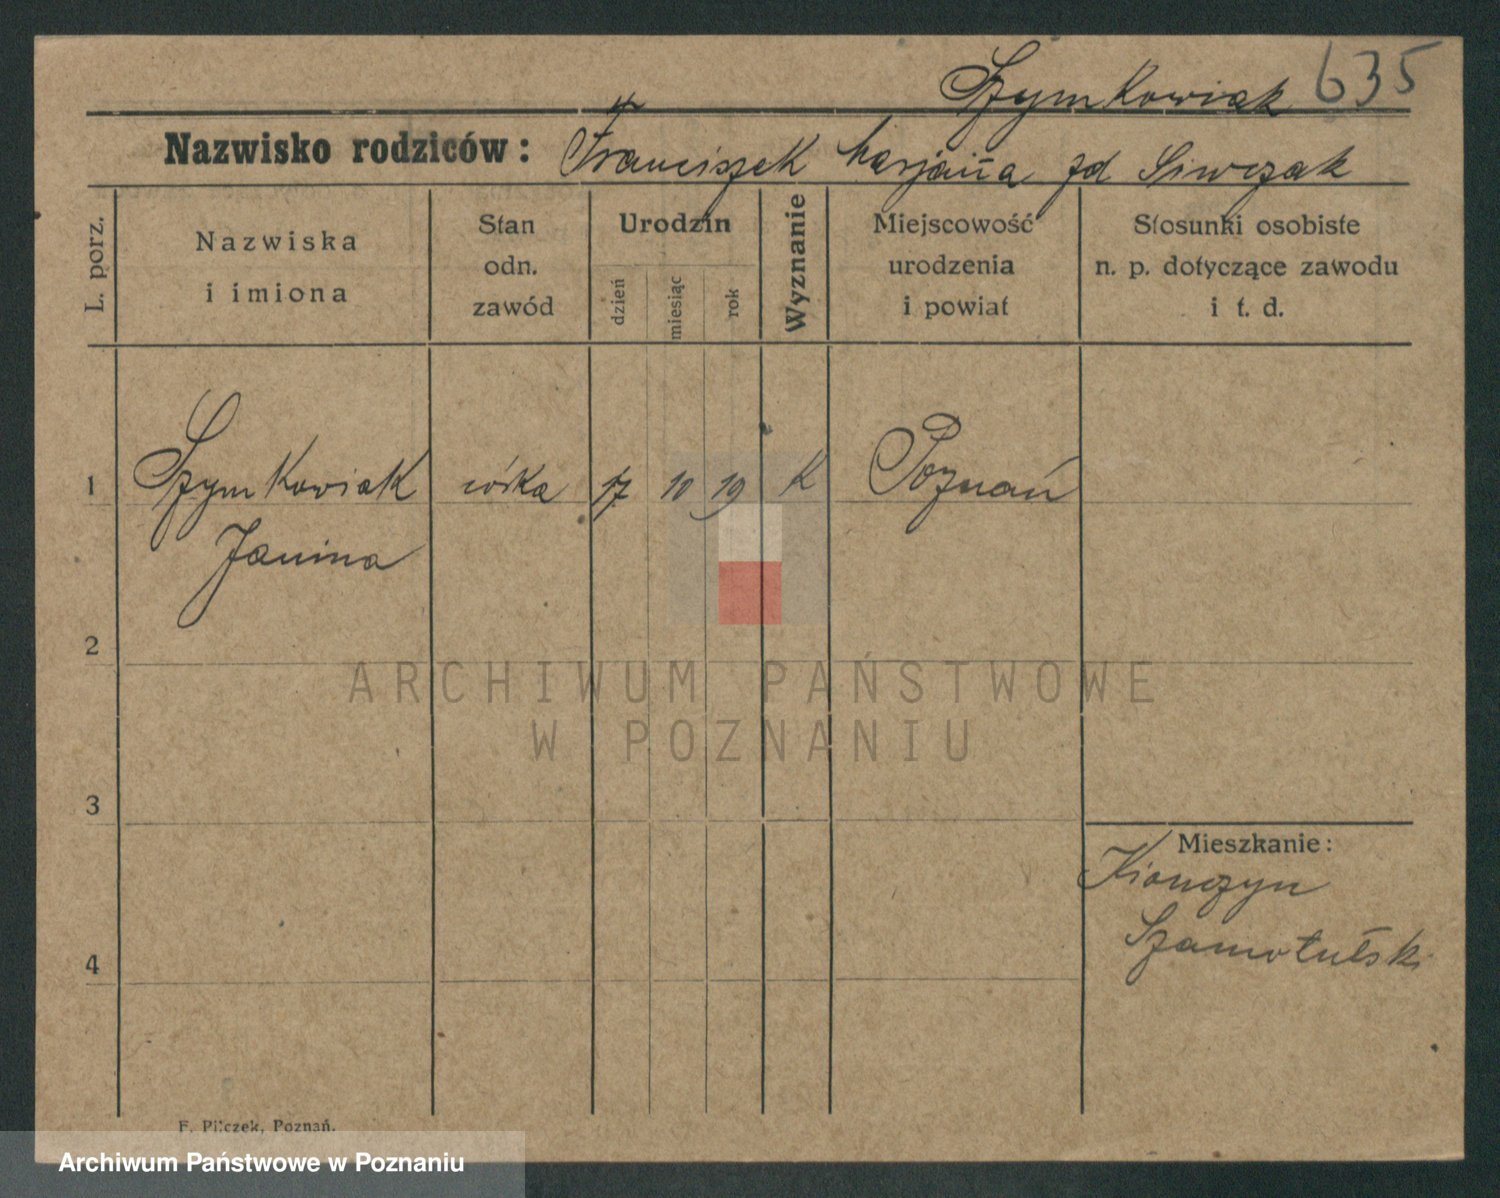 Szymkowiak 635
Nazwisko rodziców: Franciszek Marjanna zd Siwczak
L. porz.
Nazwiska
i imiona
Stan
odn.
zawód
Urodzin
dzień
miesiąc
rok
Wyznanie
Miejscowość
urodzenia
i powiat
Stosunki osobiste
n. p. dotyczące zawodu
i t. d.
1 Szymkowiak córka 17 10 19 K Poznań
Janina
2
ARCHIWUM PAŃSTWOWE
W POZNANIU
3
Mieszkanie:
Kionczyn
Szamotulski
4
F. Pilczek, Poznań.
Archiwum Państwowe w Poznaniu